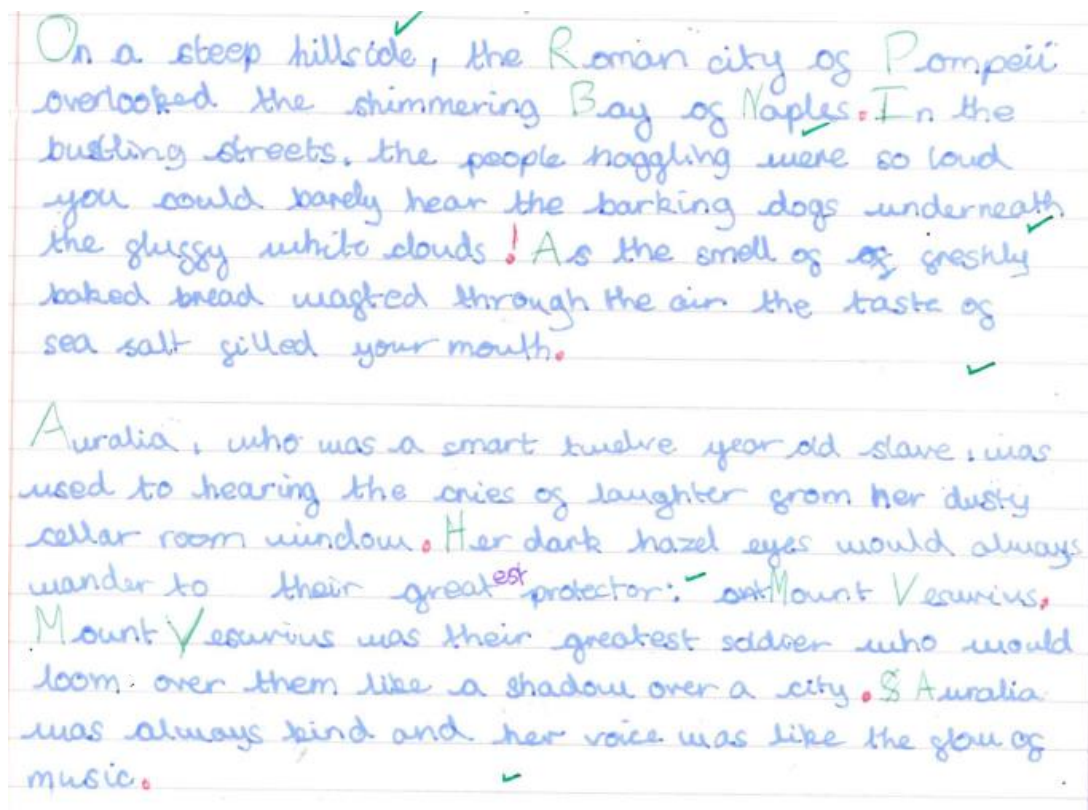 On a steep hillside, the Roman city of Pompeii
overlooked the shimmering Bay of Naples. In the
bustling streets, the people haggling were so loud
you could barely hear the barking dogs underneath
the fluffy white clouds! As the smell of of freshly
baked bread wafted through the air the taste of
sea salt filled your mouth.
Auralia, who was a smart twelve year old slave, was
used to hearing the cries of laughter from her dusty
cellar room window. Her dark hazel eyes would always
wander to their greatest protector: Mount Vesuvius.
Mount Vesuvius was their greatest soldier who would
loom over them like a shadow over a city. Auralia
was always kind and her voice was like the flow of
music.